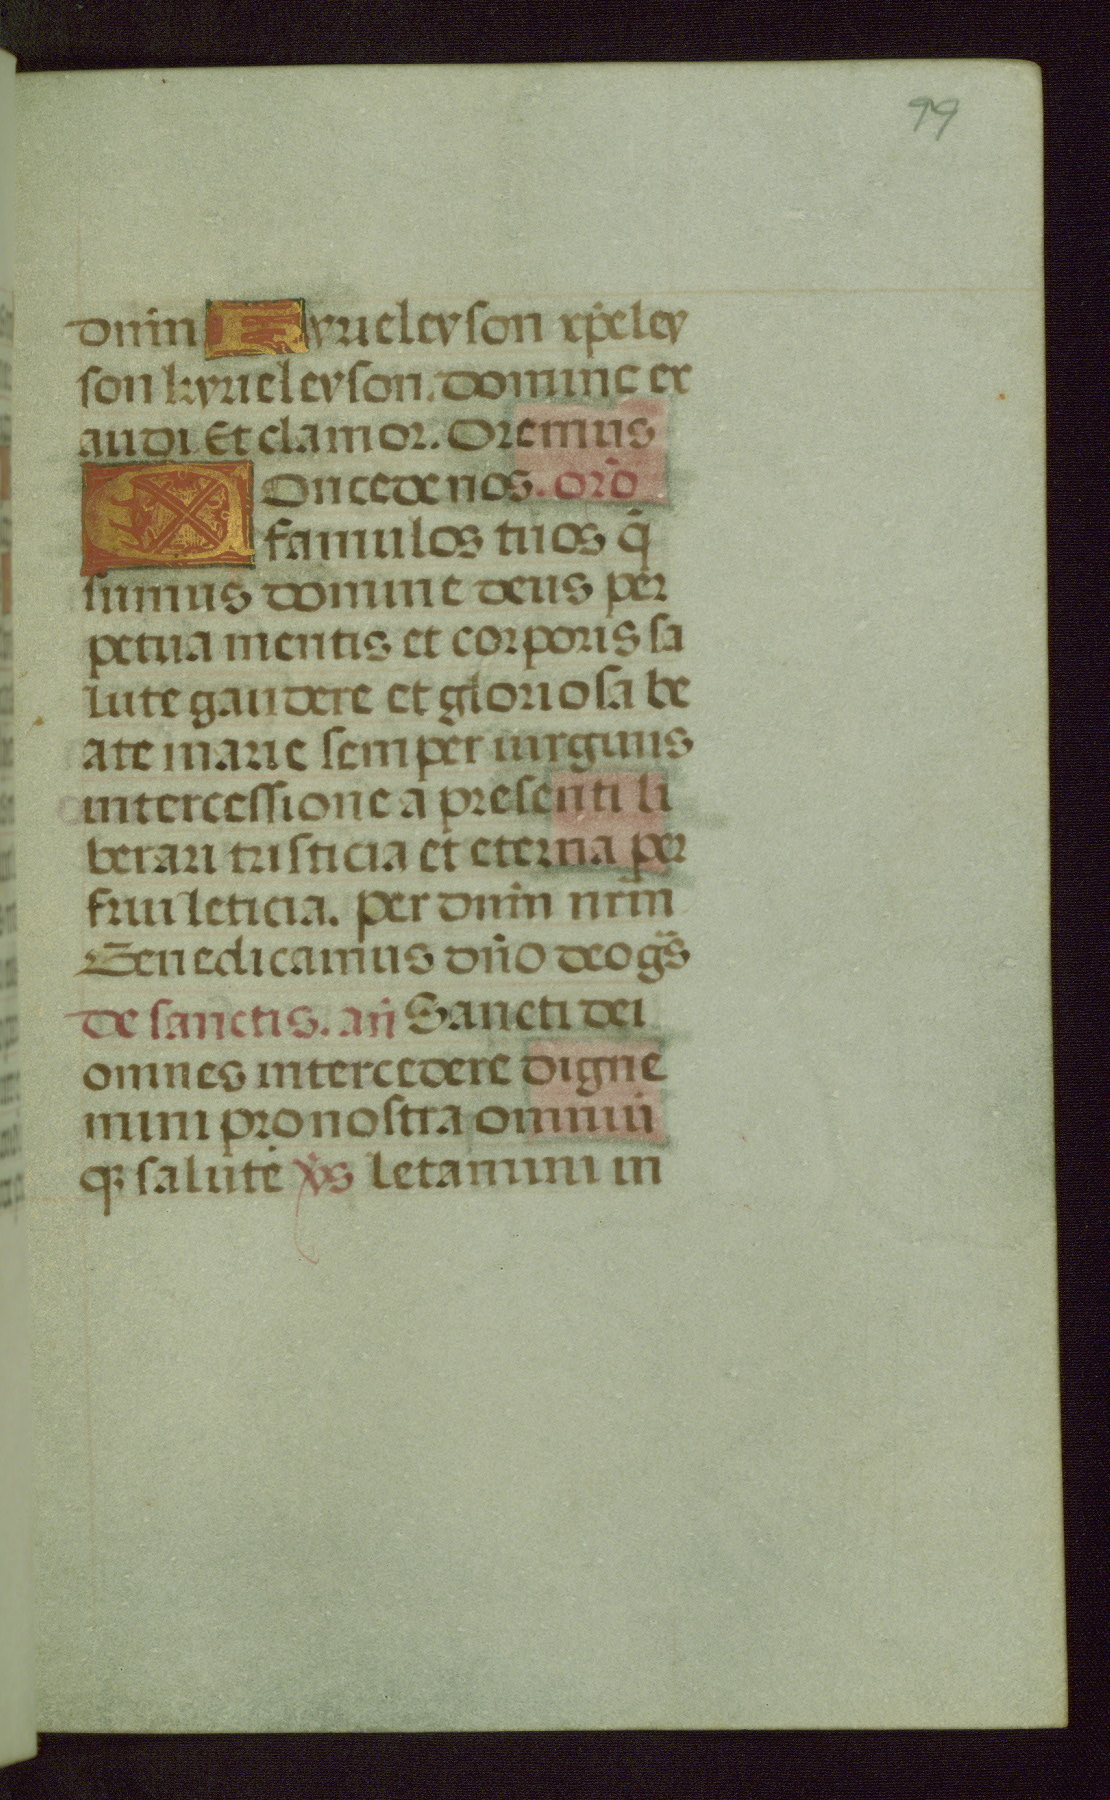 99
dnm̄ Kyrieleyson xp̄eley
son kyrieleyson. domine ex
audi Et clamor. Oremus
Concede nos. oro̅
famulos tuos q̄
sumus domine deus per
petua mentis et corporis sa
lute gaudere et gloriosa be
ate marie semper uirginis
intercessione a presenti li
berari tristicia et eterna per
frui leticia. per dnm̄ nrm̄
Benedicamus dn̄o deo gs̄
de sanctis. an̄ Sancti dei
omnes intercedere digne
mini pro nostra omniū
qꝫ salute x̄s letamini in